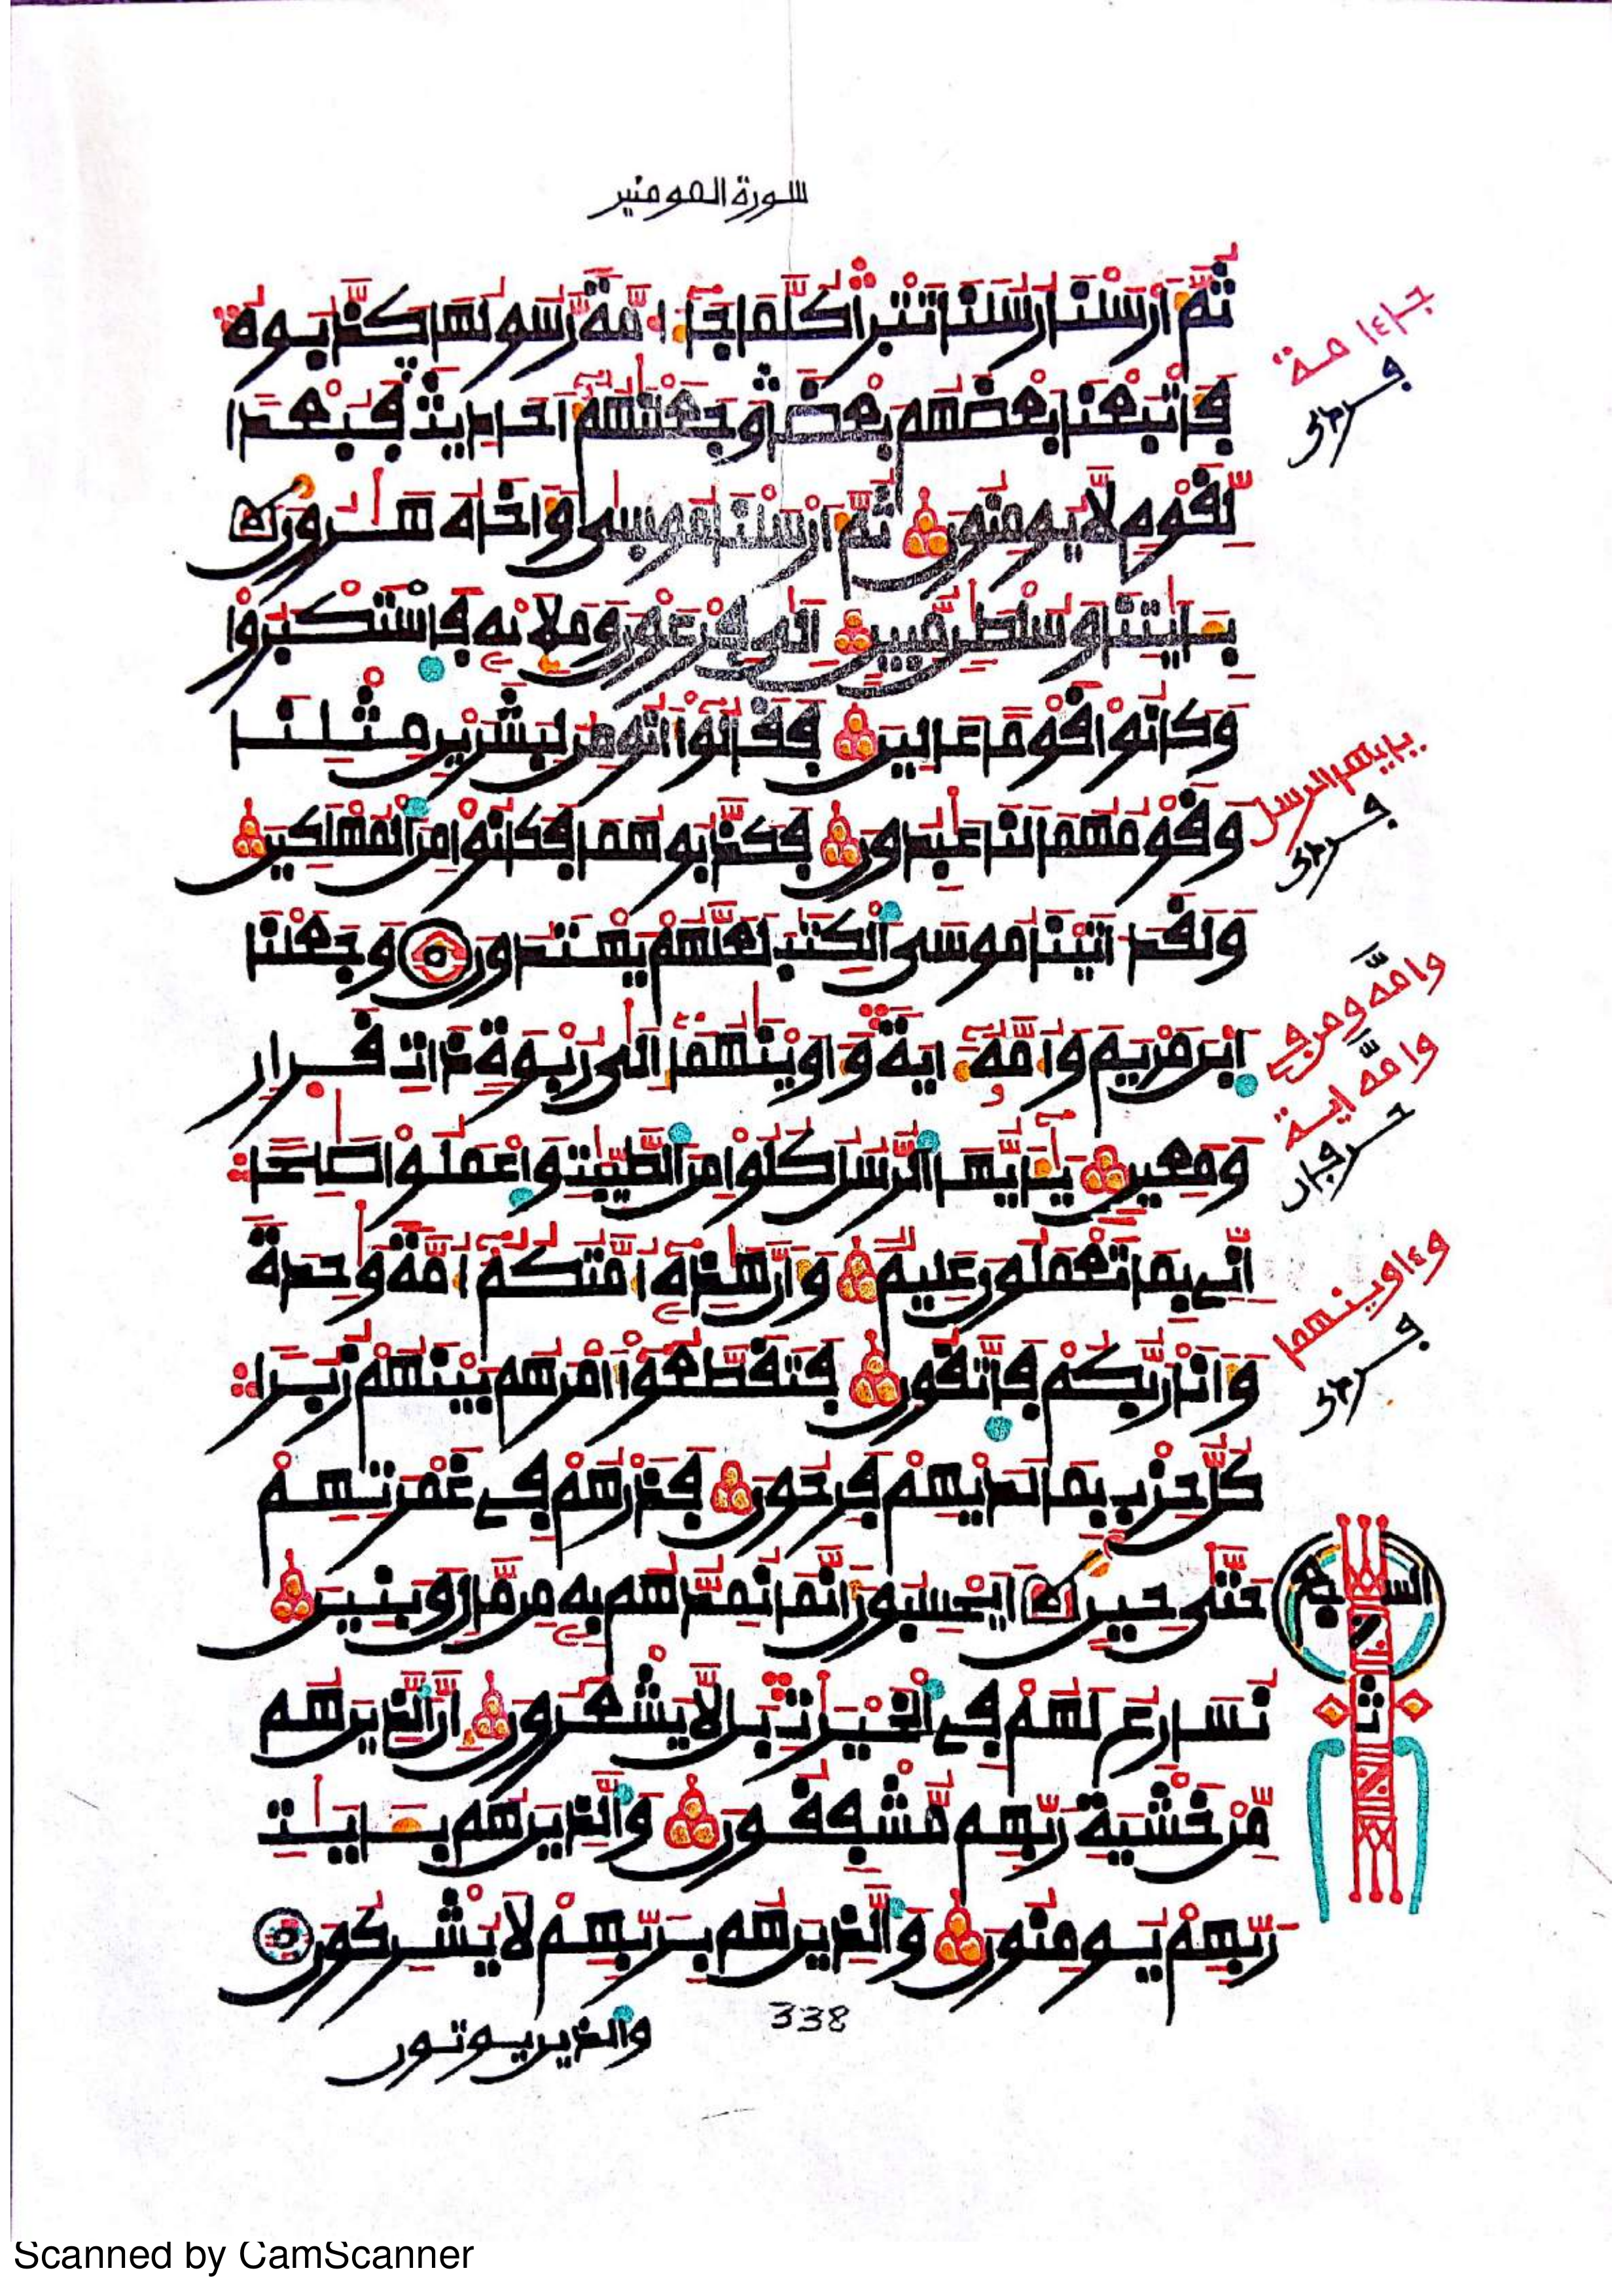 سورة المومنين
ثُمَّ أَرْسَلْنَا رُسُلَنَا تَتْرَا كُلَّمَا جَآءَ امَّةً رَّسُولُهَا كَذَّبُوهُ
فَأَتْبَعْنَا بَعْضَهُم بَعْضًا وَجَعَلْنَٰهُمُ أَحَادِيثَ فَبُعْدًا
لِّقَوْمٍ لَّا يُومِنُونَ ثُمَّ أَرْسَلْنَا مُوسَىٰ وَأَخَاهُ هَٰرُونَ
بِـَٔايَٰتِنَا وَسُلْطَٰنٍ مُّبِينٍ إِلَىٰ فِرْعَوْنَ وَمَلَإِيْهِ فَاسْتَكْبَرُواْ
وَكَانُواْ قَوْمًا عَالِينَ فَقَالُواْ أَنُومِنُ لِبَشَرَيْنِ مِثْلِنَا
وَقَوْمُهُمَا لَنَا عَٰبِدُونَ فَكَذَّبُوهُمَا فَكَانُواْ مِنَ ٱلْمُهْلَكِينَ
وَلَقَدَ اتَيْنَا مُوسَى ٱلْكِتَٰبَ لَعَلَّهُمْ يَهْتَدُونَ وَجَعَلْنَا
ٱبْنَ مَرْيَمَ وَأُمَّهُۥٓ ءَايَةً وَءَاوَيْنَٰهُمَآ إِلَىٰ رُبْوَةٍ ذَاتِ قَرَارٍ
وَمَعِينٍ يَٰٓأَيُّهَا ٱلرُّسُلُ كُلُواْ مِنَ ٱلطَّيِّبَٰتِ وَاعْمَلُواْ صَٰلِحًا
إِنِّي بِمَا تَعْمَلُونَ عَلِيمٌ وَأَنَّ هَٰذِهِۦٓ أُمَّتُكُمُۥٓ أُمَّةً وَٰحِدَةً
وَأَنَا رَبُّكُمْ فَاتَّقُونِ فَتَقَطَّعُوٓاْ أَمْرَهُم بَيْنَهُمْ زُبُرًا
كُلُّ حِزْبٍ بِمَا لَدَيْهِمْ فَرِحُونَ فَذَرْهُمْ فِي غَمْرَتِهِمْ
حَتَّىٰ حِينٍ أَيَحْسِبُونَ أَنَّمَا نُمِدُّهُم بِهِۦ مِن مَّالٍ وَبَنِينَ
نُسَارِعُ لَهُمْ فِي ٱلْخَيْرَٰتِ بَل لَّا يَشْعُرُونَ إِنَّ ٱلَّذِينَ هُم
مِّنْ خَشْيَةِ رَبِّهِم مُّشْفِقُونَ وَٱلَّذِينَ هُم بِـَٔايَٰتِ
رَبِّهِمْ يُومِنُونَ وَٱلَّذِينَ هُم بِرَبِّهِمْ لَا يُشْرِكُونَ
والذين يوتون
338
جاءامة
يايها الرسل
وامه اية
وءاوينهما
السابع
Scanned by CamScanner